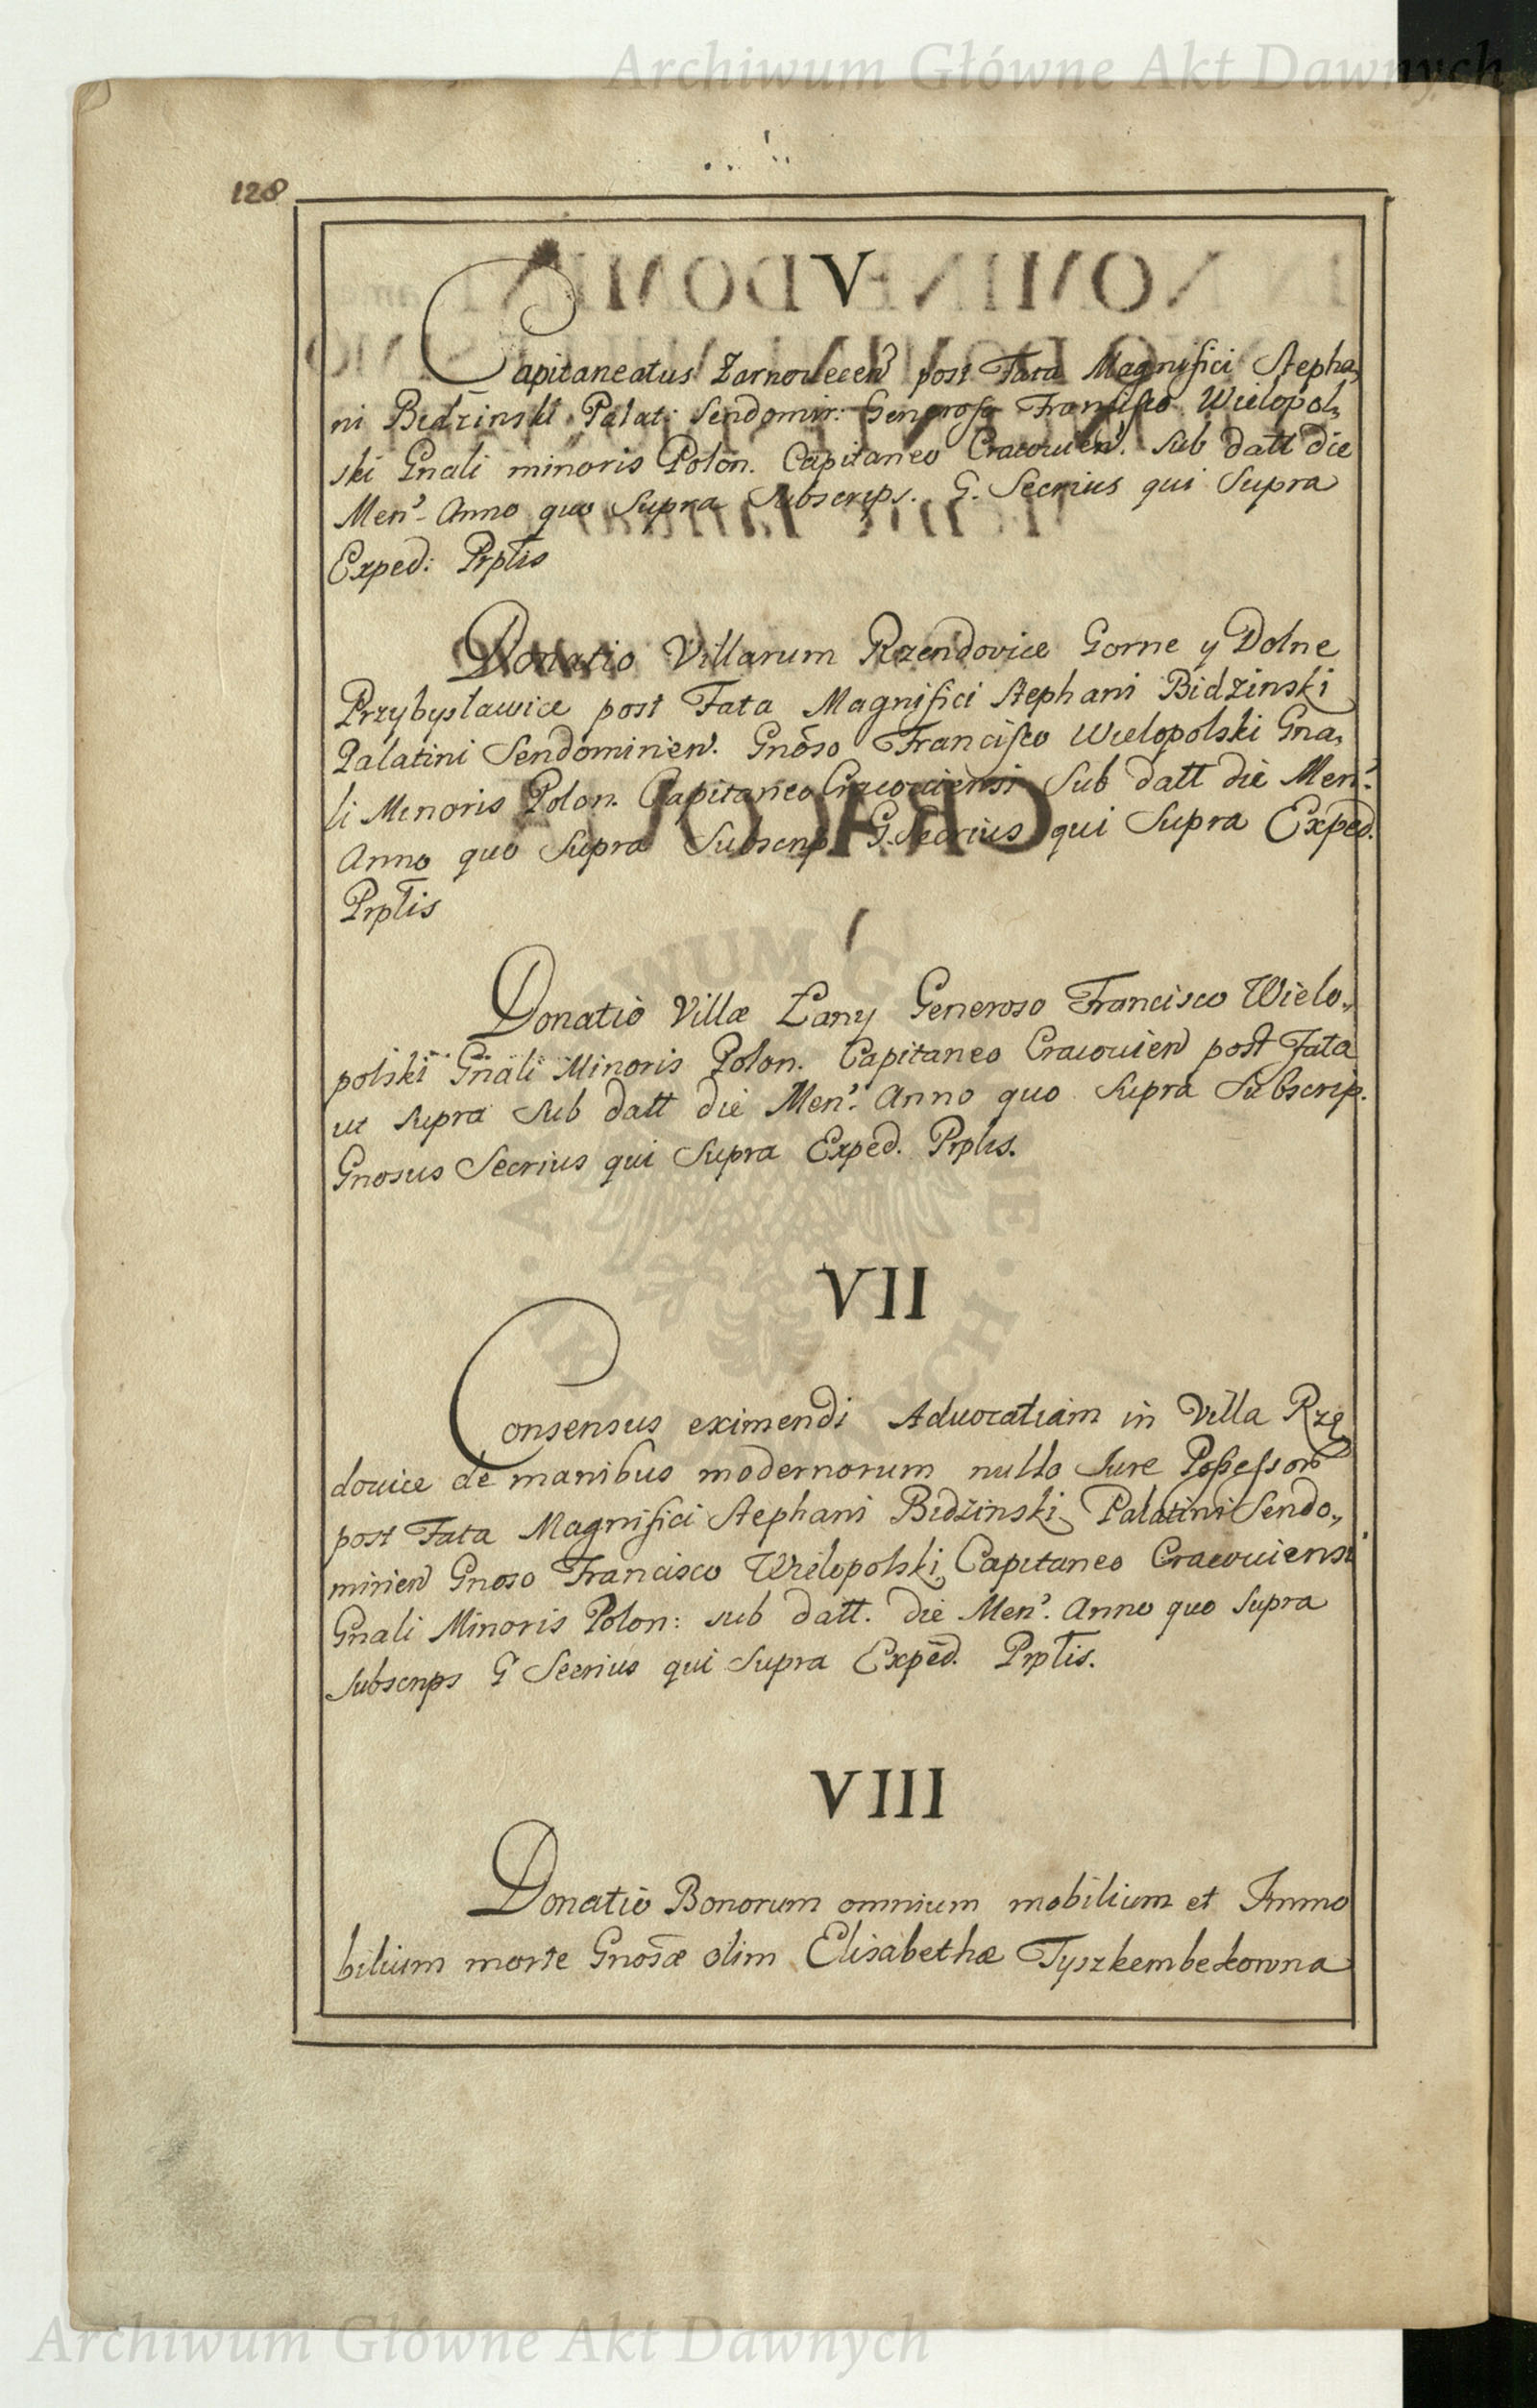 Archiwum Główne Akt Dawnych
128
V
Capitaneatus Zarnowecen post Fata Magnifici Stepha,
ni Bidzinski Palat: Sendomir: Generoso Francisco Wielopol,
ski Gnali minoris Polon. Capitaneo Cracovien. sub datt die
Men. Anno quo Supra Subscrips. G. Secrius qui Supra
Exped: Prptis
Donatio Villarum Rzendovice Gorne y Dolne
Przybysławice post Fata Magnifici Stephani Bidzinski
Palatini Sendomirien. Gnoso Francisco Wielopolski Gna,
li Minoris Polon. Capitaneo Cracoviensi Sub datt die Men.
Anno quo Supra Subscrip G. Secrius qui Supra Exped.
Prptis
Donatio Villæ Łany Generoso Francisco Wielo,,
polski Gnali Minoris Polon. Capitaneo Cracovien post Fata
ut supra sub datt die Men. Anno quo Supra Subscrip.
Gnosus Secrius qui Supra Exped. Prptis.
VII
Consensus eximendi Advocatiam in Villa Rzę
dovice de manibus modernorum nullo Iure Possessor
post Fata Magnifici Stephani Bidzinski Palatini Sendo,,
mirien Gnoso Francisco Wielopolski Capitaneo Cracoviensi
Gnali Minoris Polon: sub datt. die Men. Anno quo Supra
Subscrips G Secrius qui Supra Exped. Prptis.
VIII
Donatio Bonorum omnium mobilium et Immo
bilium morte Gnosæ olim Elisabethæ
Archiwum Główne Akt Dawnych